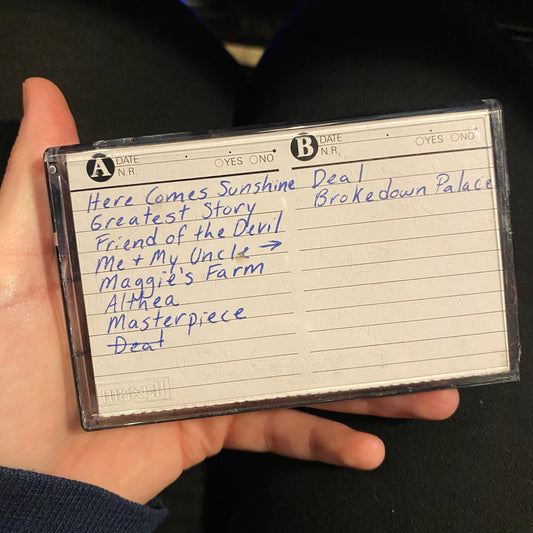 A DATE N.R. YES NO
Here Comes Sunshine
Greatest Story
Friend of the Devil
Me + My Uncle →
Maggie's Farm
Althea
Masterpiece
Deal
maxell
B DATE N.R. YES NO
Deal
Brokedown Palace